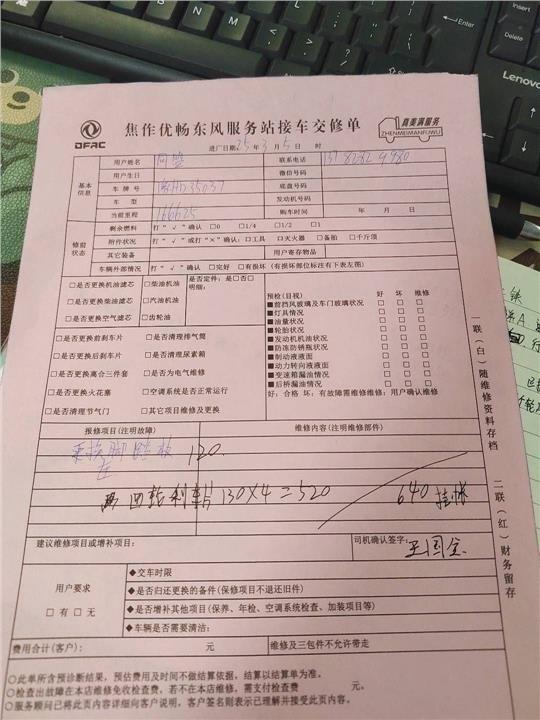 DFAC
焦作优畅东风服务站接车交修单
真美满服务
ZHENMEIMANFUWU
进厂日期:25年3月5日 时
基本信息
用户姓名 联系电话
用户生日 微信号码
车牌号 底盘号码
车型 发动机号码
当前里程 166625 购车时间 年 月 日
修前状态
剩余燃料 打"√"确认 □0 □1/4 □1/2 □1
附件状况 打"√"或打"×"确认:□工具 □灭火器 □备胎 □千斤顶
其它装备 用户寄存物品
车辆外部情况 打"√"确认 □完好 □有损坏(有损坏部位标注有下表左图)
□是否更换机油滤芯 □柴油机油 是否定件:是□否□
明细:
□是否更换机柴油滤芯 □汽油机油
□是否更换空气滤芯 □齿轮油
□是否更换前刹车片 □是否清理排气筒
□是否更换后刹车片 □是否清理尿素箱
□是否更换离合三件套 □是否为电气维修
□是否更换火花塞 □空调系统是否正常运行
□是否清理节气门 □其它项目维修及更换
预检(目视) 好 坏 维修
■前挡风玻璃及车门玻璃状况 □ □ □
■灯具情况 □ □ □
■油量状况 □ □ □
■轮胎状况 □ □ □
■发动机机油状况 □ □ □
■防冻防锈瓶状况 □ □ □
■制动液液面 □ □ □
■动力转向液液面 □ □ □
■变速箱漏油情况 □ □ □
■后桥漏油情况 □ □ □
好:合格 坏:有故障需维修维修:用户确认维修
报修项目(注明故障) 维修内容(注明维修部件)
120
左
130×4=520
640 挂帐
建议维修项目或增补项目: 司机确认签字:
王国全
用户要求
□有□无
◆交车时限
◆是否归还更换的备件(保修项目不退还旧件)
◆是否增补其他项目(保养、年检、空调系统检查、加装项目等)
◆车辆是否需要清洁:
费用合计(客户): 元 维修及三包件不允许带走
○此单所含预诊断结果,预估费用及时间不做结算依据,结算以结算单为准。
○检查出故障在本店维修免收检查费,若不在本店维修,需支付检查费 元。
○服务顾问已将此页内容详细向客户说明,客户签名则表示已理解并接受此页内容。
一联(白)随维修资料存档
二联(红)财务留存
Lenovo